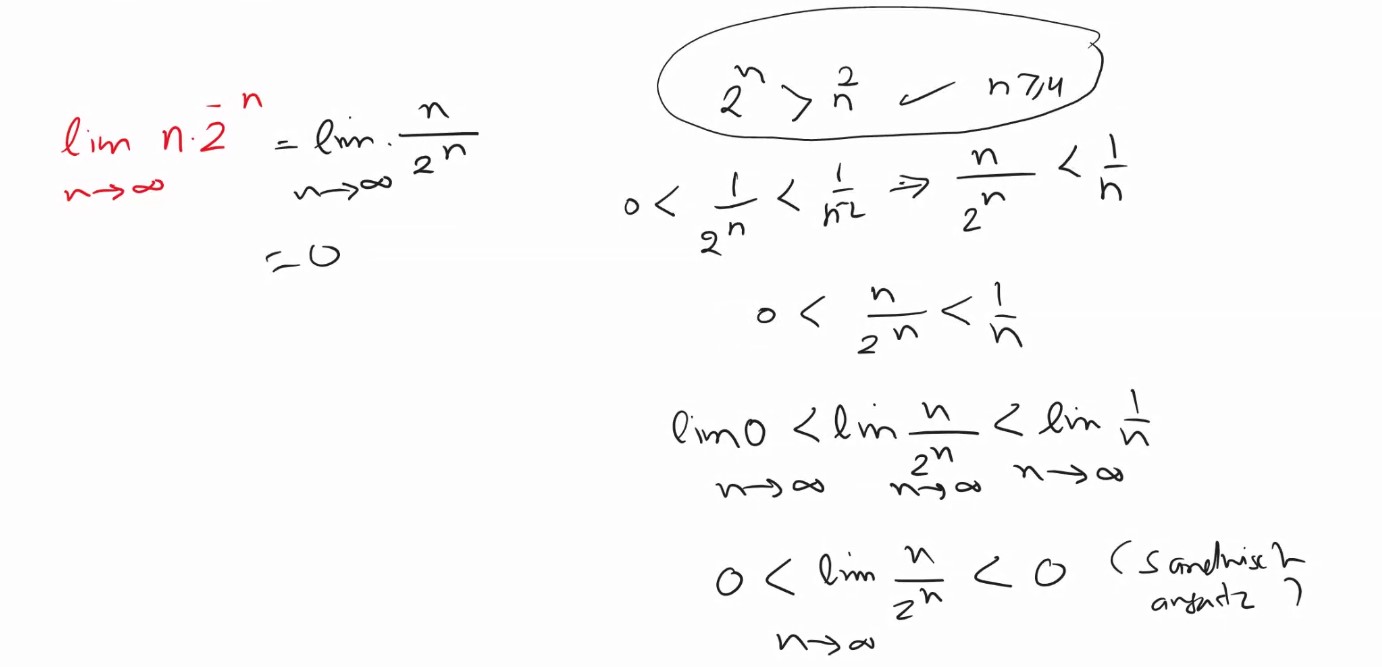 lim n→∞ n·2^-n = lim n→∞ · n/2^n
= 0
2^n > n^2 ✓ n ⩾ 4
0 < 1/2^n < 1/n^2 ⇒ n/2^n < 1/n
0 < n/2^n < 1/n
lim n→∞ 0 < lim n→∞ n/2^n < lim n→∞ 1/n
0 < lim n→∞ n/2^n < 0 (Sandwisch
ansatz)